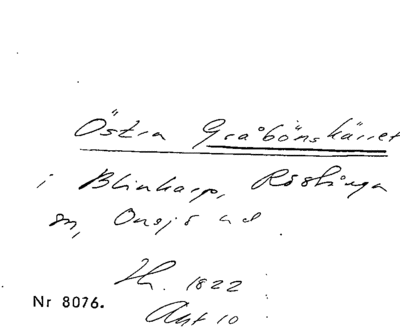 Östra Gråbönskärret
i Blinkarp, Röstånga
sn, Onsjö hd
H. 1822
Akt 10
Nr 8076.